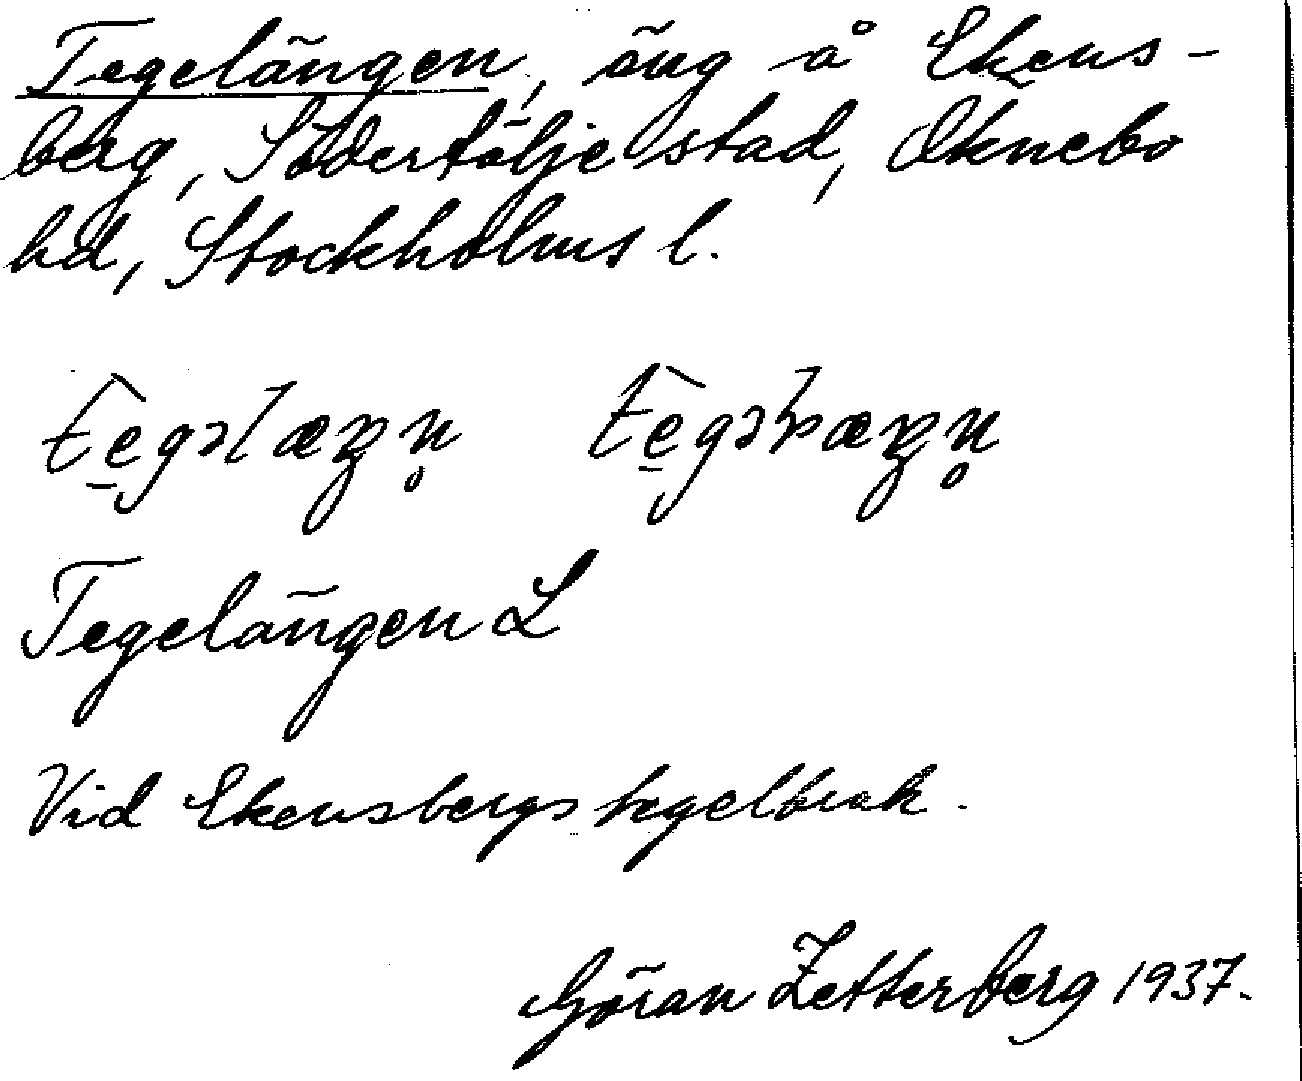 Tegelängen, äng å Ekens-
berg, Södertälje stad, Öknebo
hd, Stockholms l.
Tegelängen L
Vid Ekensbergs tegelbruk.
Göran Zetterberg 1937.